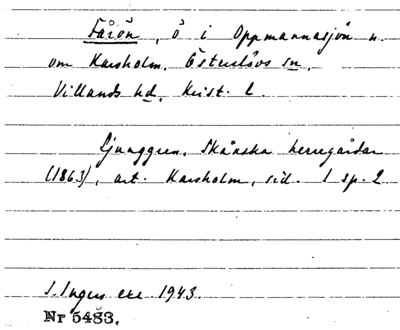 Fårön, ö i Oppmannasjön n.
om Karsholm. Österslövs sn.
Villands hd. Krist. l.
Ljunggren. Skånska herregårdar
(1863), art. Karsholm, sid. 1 sp. 2
I. Ingers exc 1943.
Nr 5483.